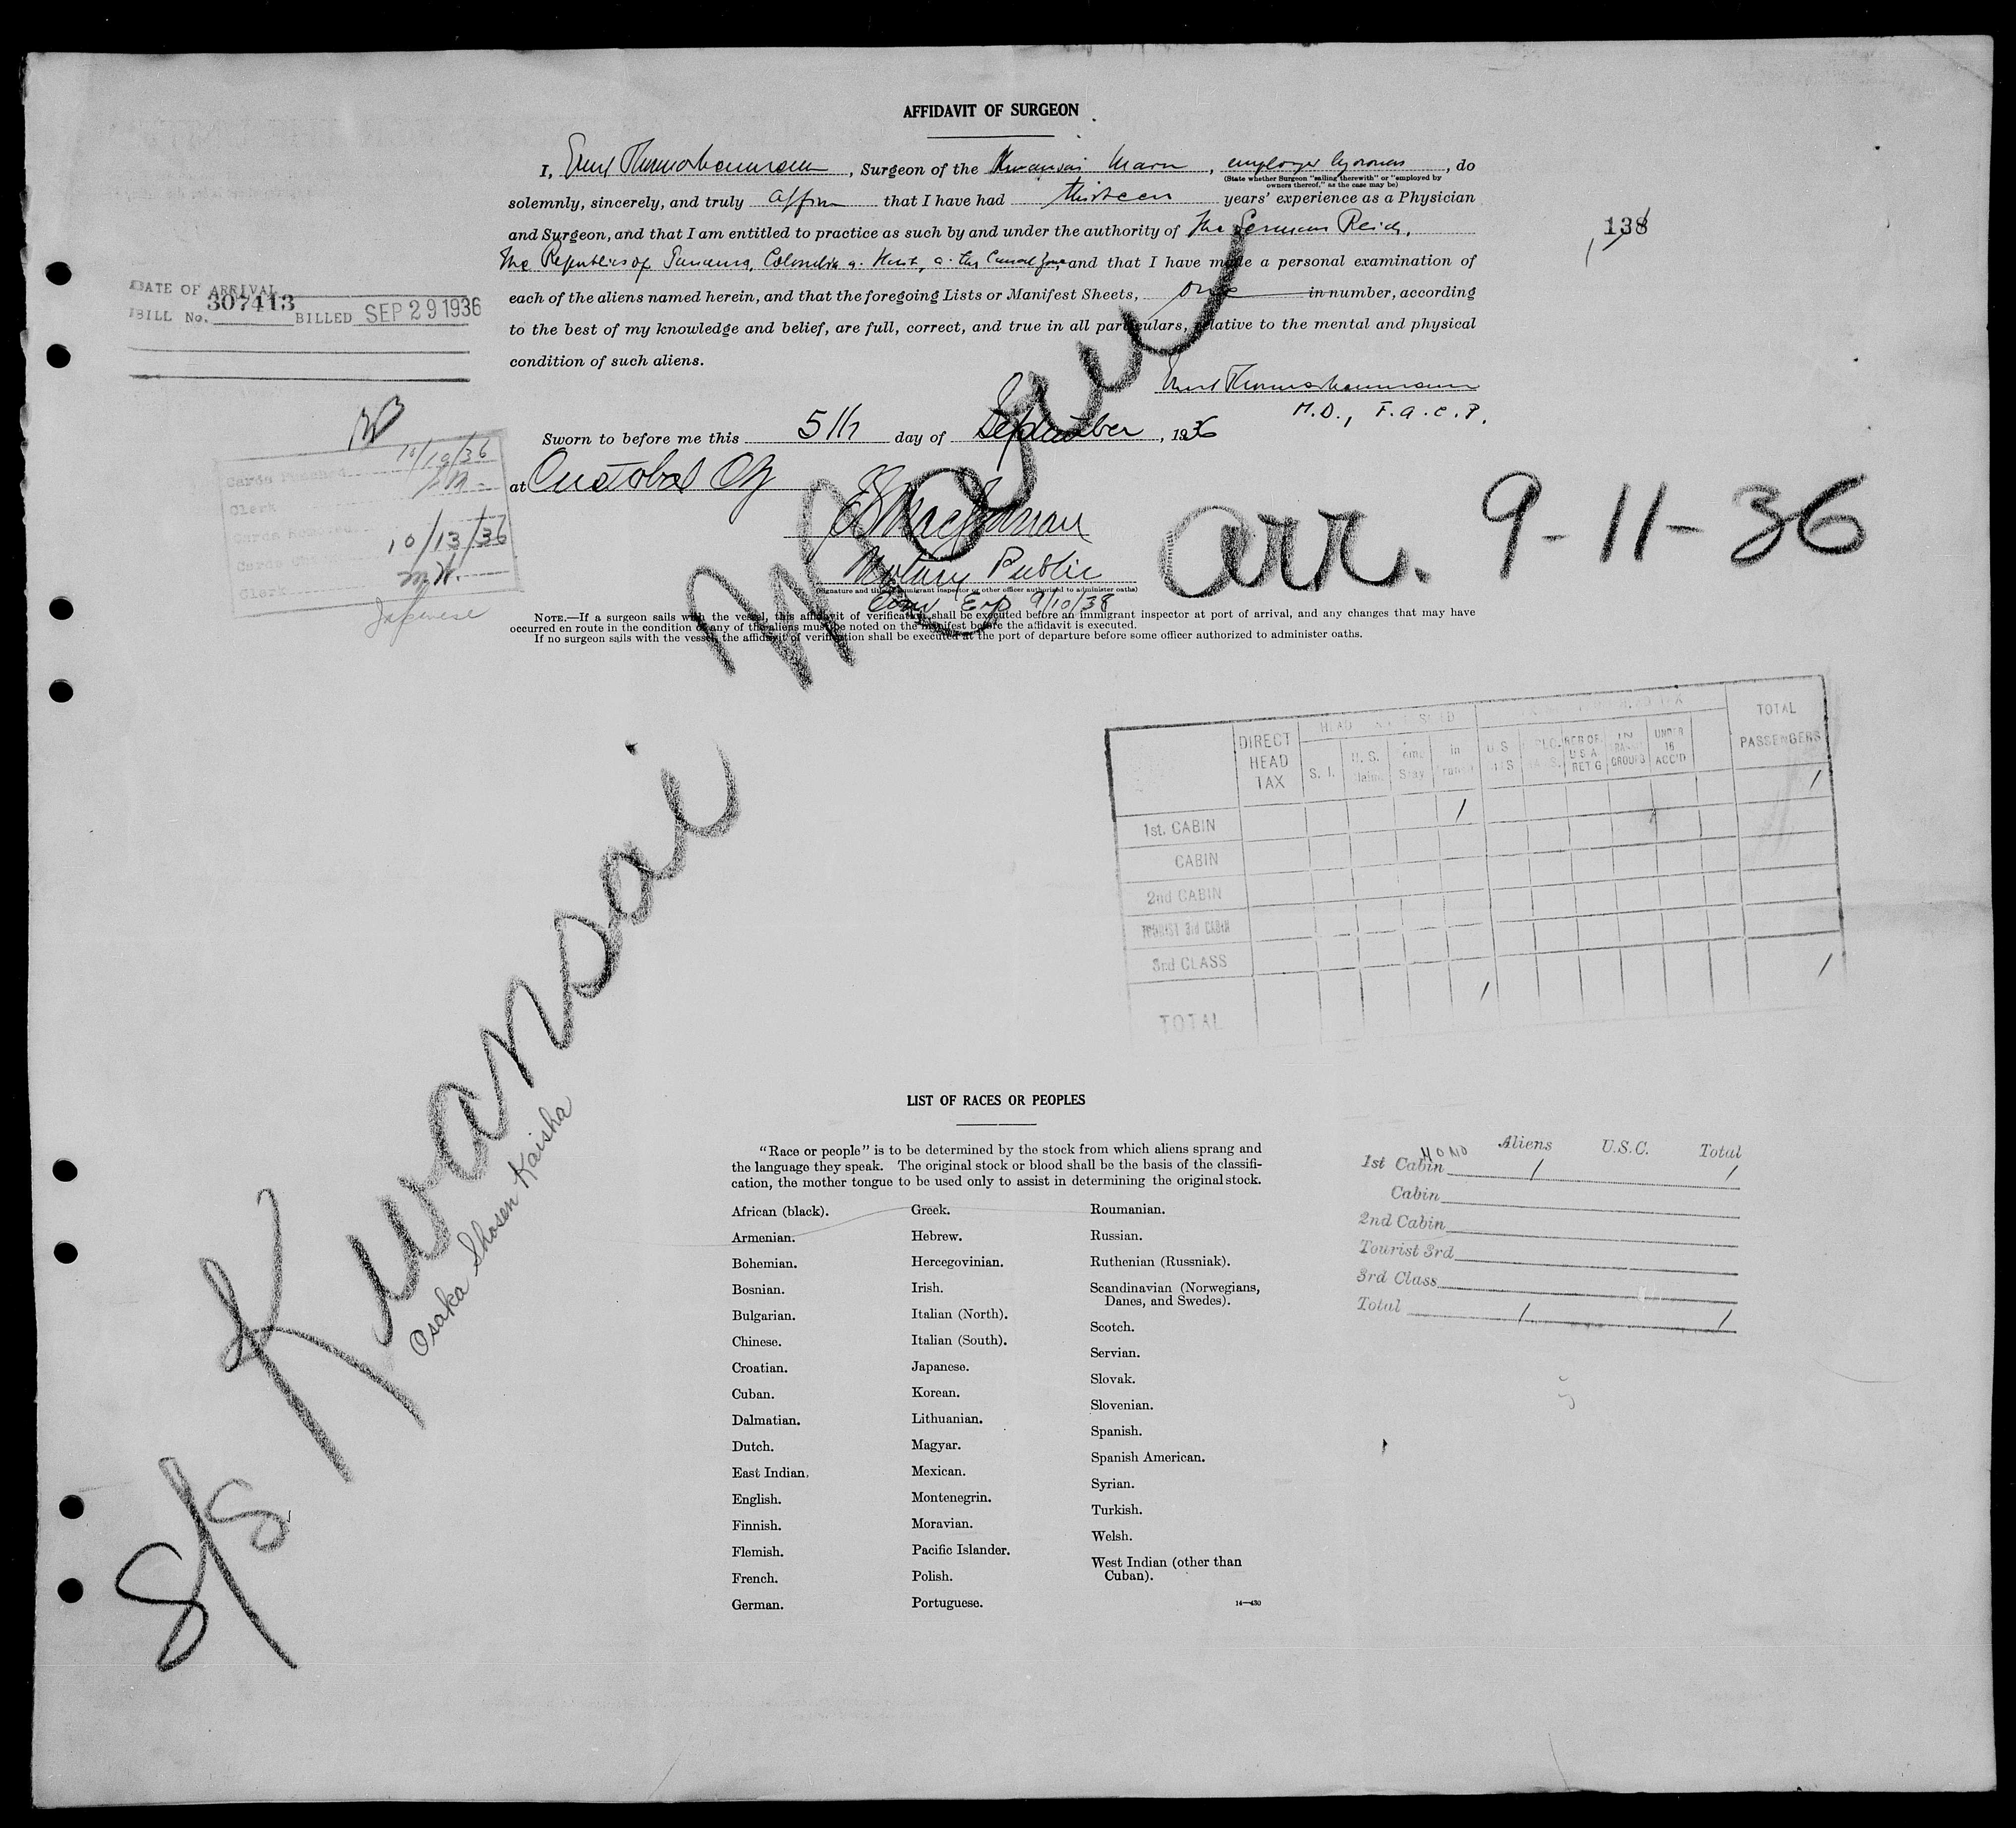 AFFIDAVIT OF SURGEON
I, , Surgeon of the Kwansai Maru, employed by owners, do
(State whether Surgeon "sailing therewith" or "employed by
owners thereof," as the case may be)
solemnly, sincerely, and truly affirm that I have had thirteen years' experience as a Physician
and Surgeon, and that I am entitled to practice as such by and under the authority of The German Reich,
The Republics of Panama, Colombia a. , a. the Canal Zone, and that I have made a personal examination of
each of the aliens named herein, and that the foregoing Lists or Manifest Sheets, one in number, according
to the best of my knowledge and belief, are full, correct, and true in all particulars, relative to the mental and physical
condition of such aliens.
M.D., F.A.C.P.
Sworn to before me this 5th day of September, 1936
at Cristobal CZ
Notary Public
(Signature and title of immigrant inspector or other officer authorized to administer oaths)
Com Exp 9/10/38
NOTE.—If a surgeon sails with the vessel, this affidavit of verification shall be executed before an immigrant inspector at port of arrival, and any changes that may have
occurred en route in the condition of any of the aliens must be noted on the manifest before the affidavit is executed.
If no surgeon sails with the vessel, the affidavit of verification shall be executed at the port of departure before some officer authorized to administer oaths.
138
DATE OF ARRIVAL
BILL No. 307413 BILLED SEP 29 1936
Cards Punched 10/19/36
Clerk
10/13/36
Clerk M.W.
Japanese
S/S Kwansai Maru
Osaka Shosen Kaisha
arr. 9-11-36
DIRECT HEAD TAX
S. I.
U. S.
in
U.S.
U.S.A RET'G
GROUPS
UNDER 16 ACC'D
TOTAL PASSENGERS
1st. CABIN 1 1
CABIN
2nd CABIN
TOURIST 3rd CABIN
3rd CLASS
TOTAL 1 1
LIST OF RACES OR PEOPLES
"Race or people" is to be determined by the stock from which aliens sprang and
the language they speak. The original stock or blood shall be the basis of the classifi-
cation, the mother tongue to be used only to assist in determining the original stock.
African (black).
Armenian.
Bohemian.
Bosnian.
Bulgarian.
Chinese.
Croatian.
Cuban.
Dalmatian.
Dutch.
East Indian.
English.
Finnish.
Flemish.
French.
German.
Greek.
Hebrew.
Hercegovinian.
Irish.
Italian (North).
Italian (South).
Japanese.
Korean.
Lithuanian.
Magyar.
Mexican.
Montenegrin.
Moravian.
Pacific Islander.
Polish.
Portuguese.
Roumanian.
Russian.
Ruthenian (Russniak).
Scandinavian (Norwegians,
Danes, and Swedes).
Scotch.
Servian.
Slovak.
Slovenian.
Spanish.
Spanish American.
Syrian.
Turkish.
Welsh.
West Indian (other than
Cuban).
14—430
Aliens U.S.C. Total
1st Cabin 1 1
Cabin
2nd Cabin
Tourist 3rd
3rd Class
Total 1 1